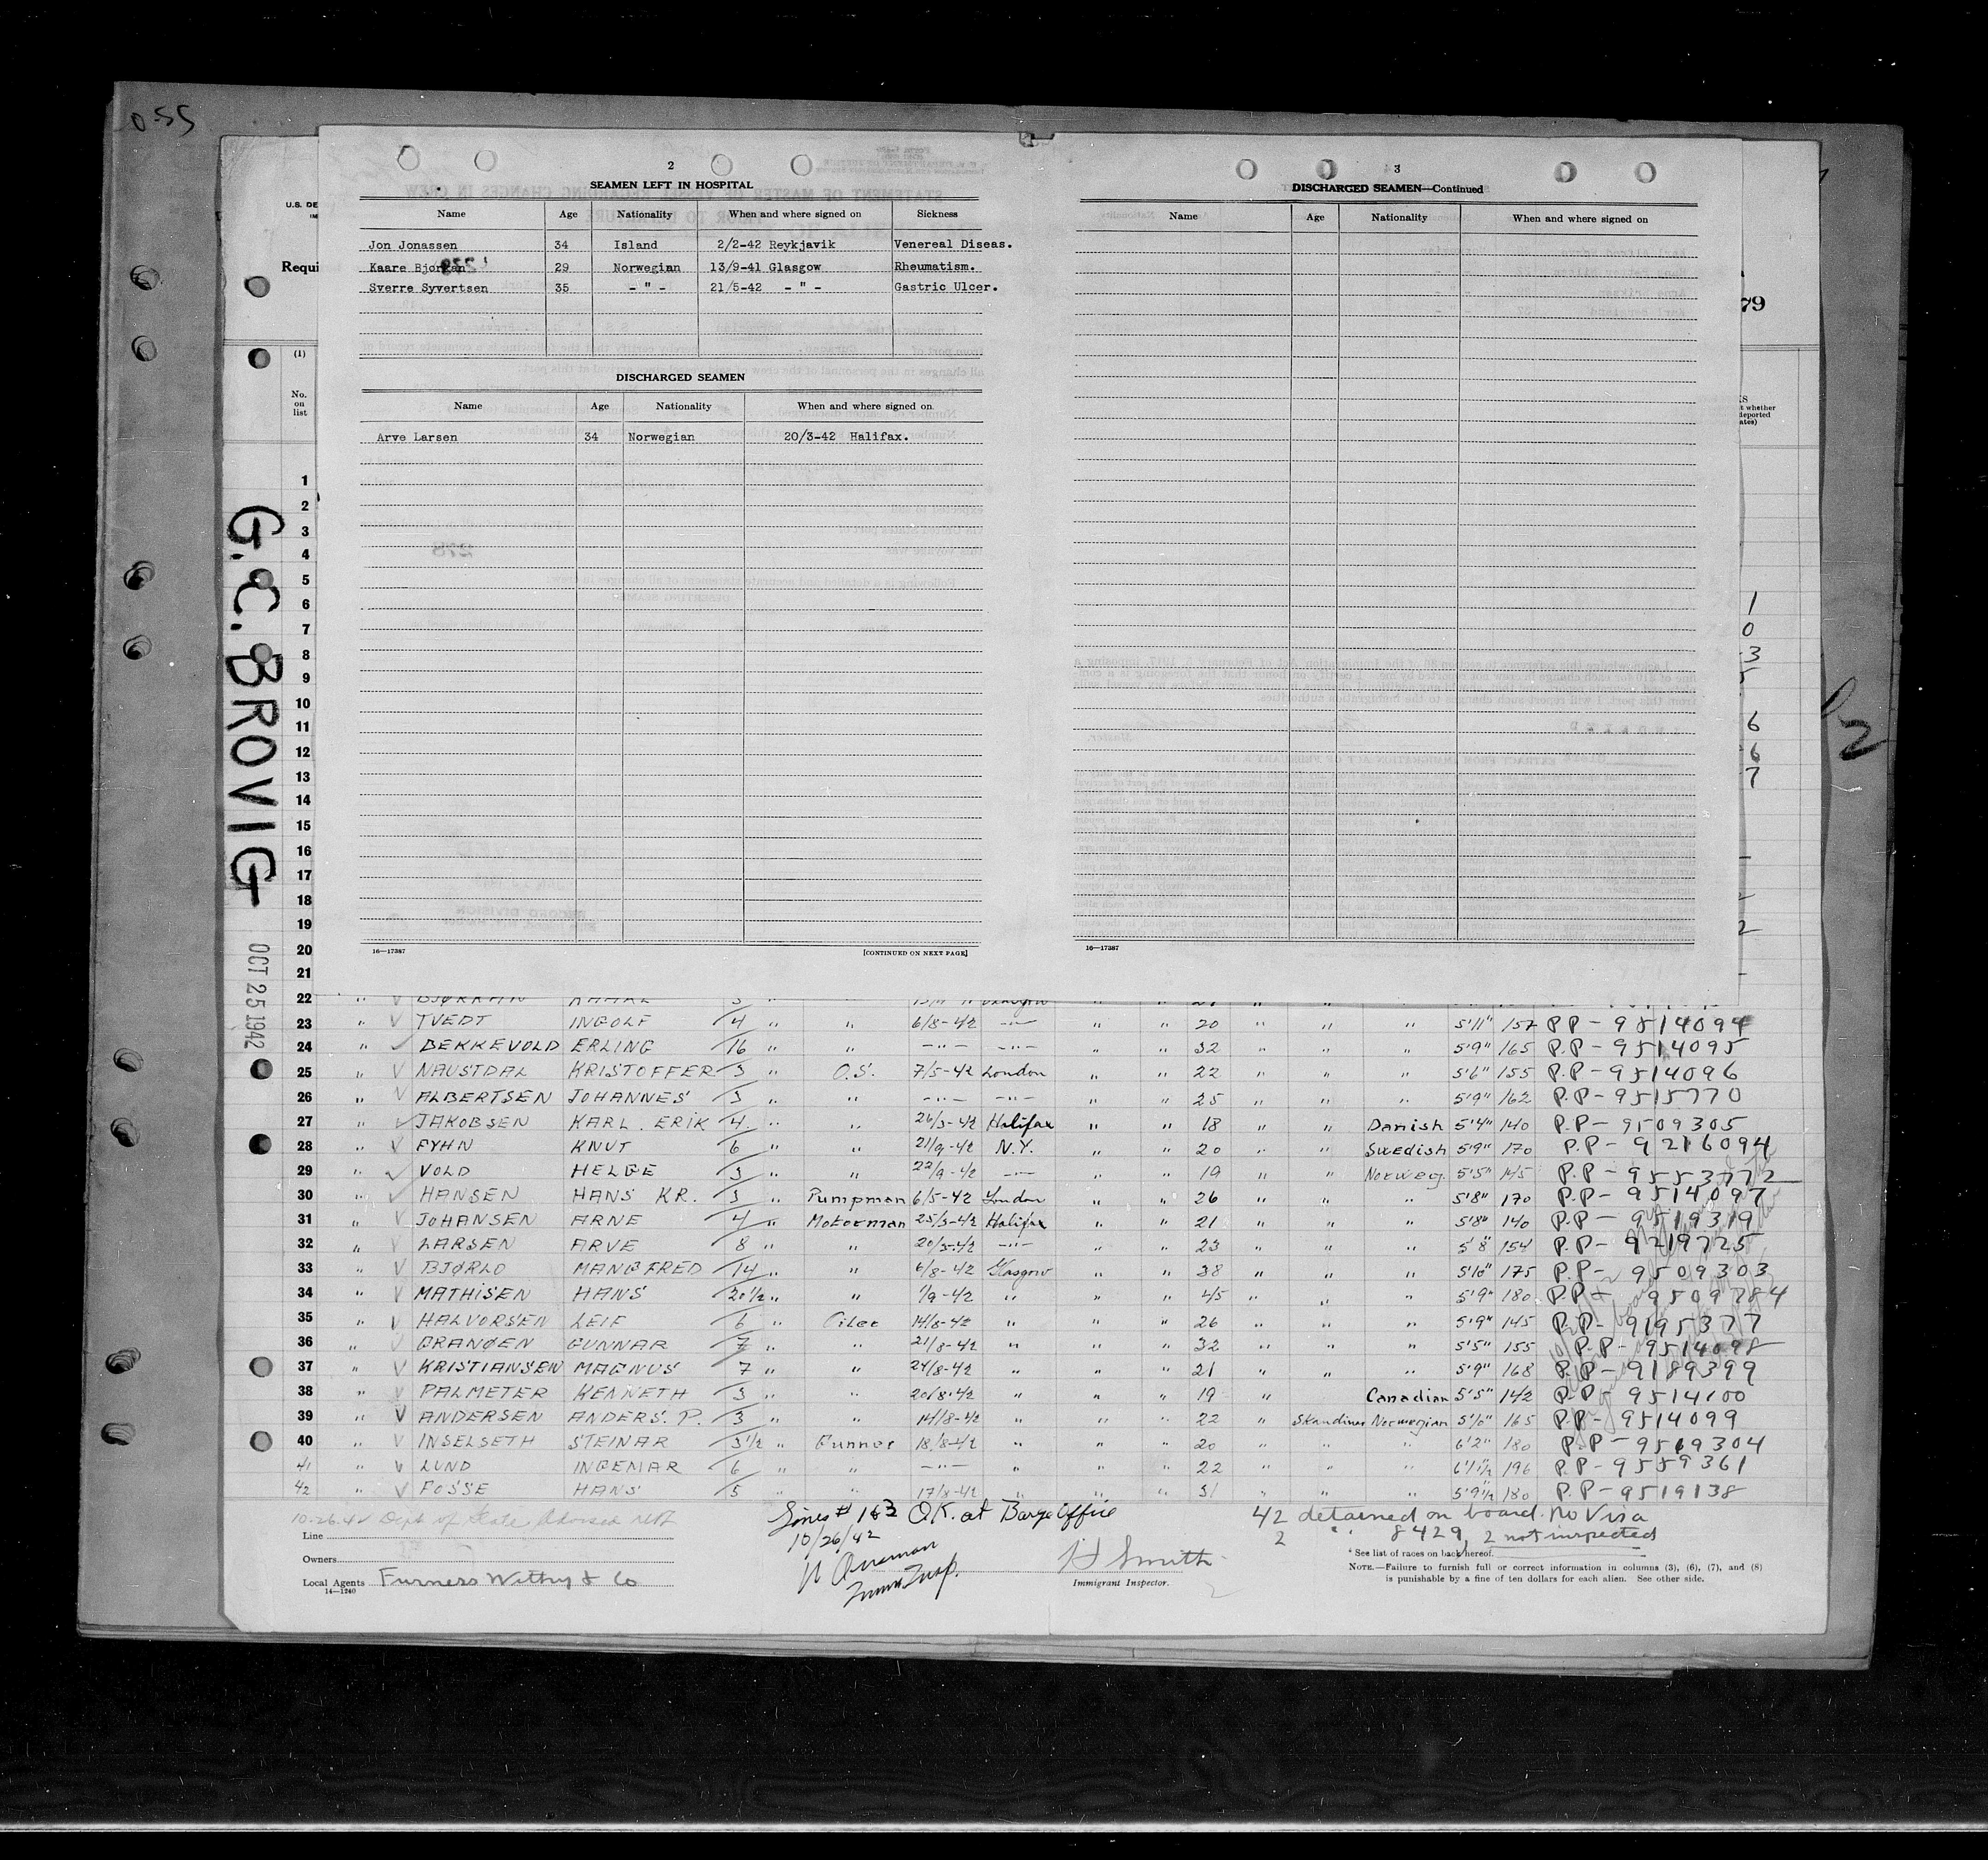 0-55
2
SEAMEN LEFT IN HOSPITAL
Name Age Nationality When and where signed on Sickness
Jon Jonassen 34 Island 2/2-42 Reykjavik Venereal Diseas.
Kaare Bjorkan 29 Norwegian 13/9-41 Glasgow Rheumatism.
Sverre Syvertsen 35 - " - 21/5-42 - " - Gastric Ulcer.
DISCHARGED SEAMEN
Name Age Nationality When and where signed on
Arve Larsen 34 Norwegian 20/3-42 Halifax.
16—17387 [CONTINUED ON NEXT PAGE]
3
DISCHARGED SEAMEN—Continued
Name Age Nationality When and where signed on
16—17387
U.S. DE
Requi
79
(1)
No.
on
list
t whether
deported
ates)
G.C. BROVIG
OCT 25 1942
2
1
2
3
4
5
6
7
8
9
10
11
12
13
14
15
16
17
18
19
20
21
1
0
3
6
6
7
2
22 " V BJØRKAN
23 " V TVEDT INGOLF 4 " " 6/8-42 -"- " " 20 " " " 5'11" 157 PP-9514094
24 " BEKKEVOLD ERLING 16 " " -"- -"- " " 32 " " " 5'9" 165 P.P-9514095
25 " V NAUSTDAL KRISTOFFER 3 " O.S. 7/5-42 London " " 22 " " " 5'6" 155 P.P-9514096
26 " V ALBERTSEN JOHANNES 3 " " -"- -"- " " 25 " " " 5'9" 162 P.P-9515770
27 " JAKOBSEN KARL. ERIK 4 " " 26/3-42 Halifax " " 18 " " Danish 5'4" 140 P.P-9509305
28 " V FYHN KNUT 6 " " 21/9-42 N.Y. " " 20 " " Swedish 5'9" 170 P.P-9216094
29 " VOLD HELGE 3 " " 22/9-42 -"- " " 19 " " Norweg. 5'5" 145 P.P-9553772
30 " HANSEN HANS KR. 3 " Pumpman 6/5-42 London " " 26 " " " 5'8" 170 P.P-9514097
31 " V JOHANSEN ARNE 4 " Motorman 25/3-42 Halifax " " 21 " " " 5'8" 140 P.P-9519319
32 " V LARSEN ARVE 8 " " 20/3-42 -"- " " 23 " " " 5'8" 154 P.P-9219725
33 " V BJØRLO MANGFRED 14 " " 6/8-42 Glasgow " " 38 " " " 5'10" 175 P.P-9509303
34 " V MATHISEN HANS 20½ " " 1/9-42 " " " 45 " " " 5'9" 180 P.P-9509784
35 " V HALVORSEN LEIF 6 " Oiler 14/8-42 " " " 26 " " " 5'9" 145 P.P-9195377
36 " V GRANØEN GUNNAR 7 " " 21/8-42 " " " 32 " " " 5'5" 155 P.P-9514098
37 " V KRISTIANSEN MAGNUS 7 " " 24/8-42 " " " 21 " " " 5'9" 168 P.P-9189399
38 " V PALMETER KENNETH 3 " " 20/8-42 " " " 19 " Canadian 5'5" 142 P.P-9514100
39 " V ANDERSEN ANDERS. P. 3 " " 14/8-42 " " " 22 " Skandinav Norwegian 5'10" 165 P.P-9514099
40 " V INSELSETH STEINAR 3½ " Gunner 18/8-42 " " " 20 " " " 6'2" 180 P.P-9519304
41 " V LUND INGEMAR 6 " " -"- " " " 22 " " " 6'1½" 196 P.P-9559361
42 " V FOSSE HANS 5 " " 17/8-42 " " " 31 " " " 5'9½" 180 P.P-9519138
10-26-42 Dept of State Advised
Line
Owners
Local Agents Furness Withy & Co
14—1240
Lines # 163 O.K. at Barge Office
10/26/42
Imm Insp.
H Smith
Immigrant Inspector.
42 detained on board. No Visa
2 " 8429, 2 not inspected
* See list of races on back hereof.
NOTE.—Failure to furnish full or correct information in columns (3), (6), (7), and (8)
is punishable by a fine of ten dollars for each alien. See other side.